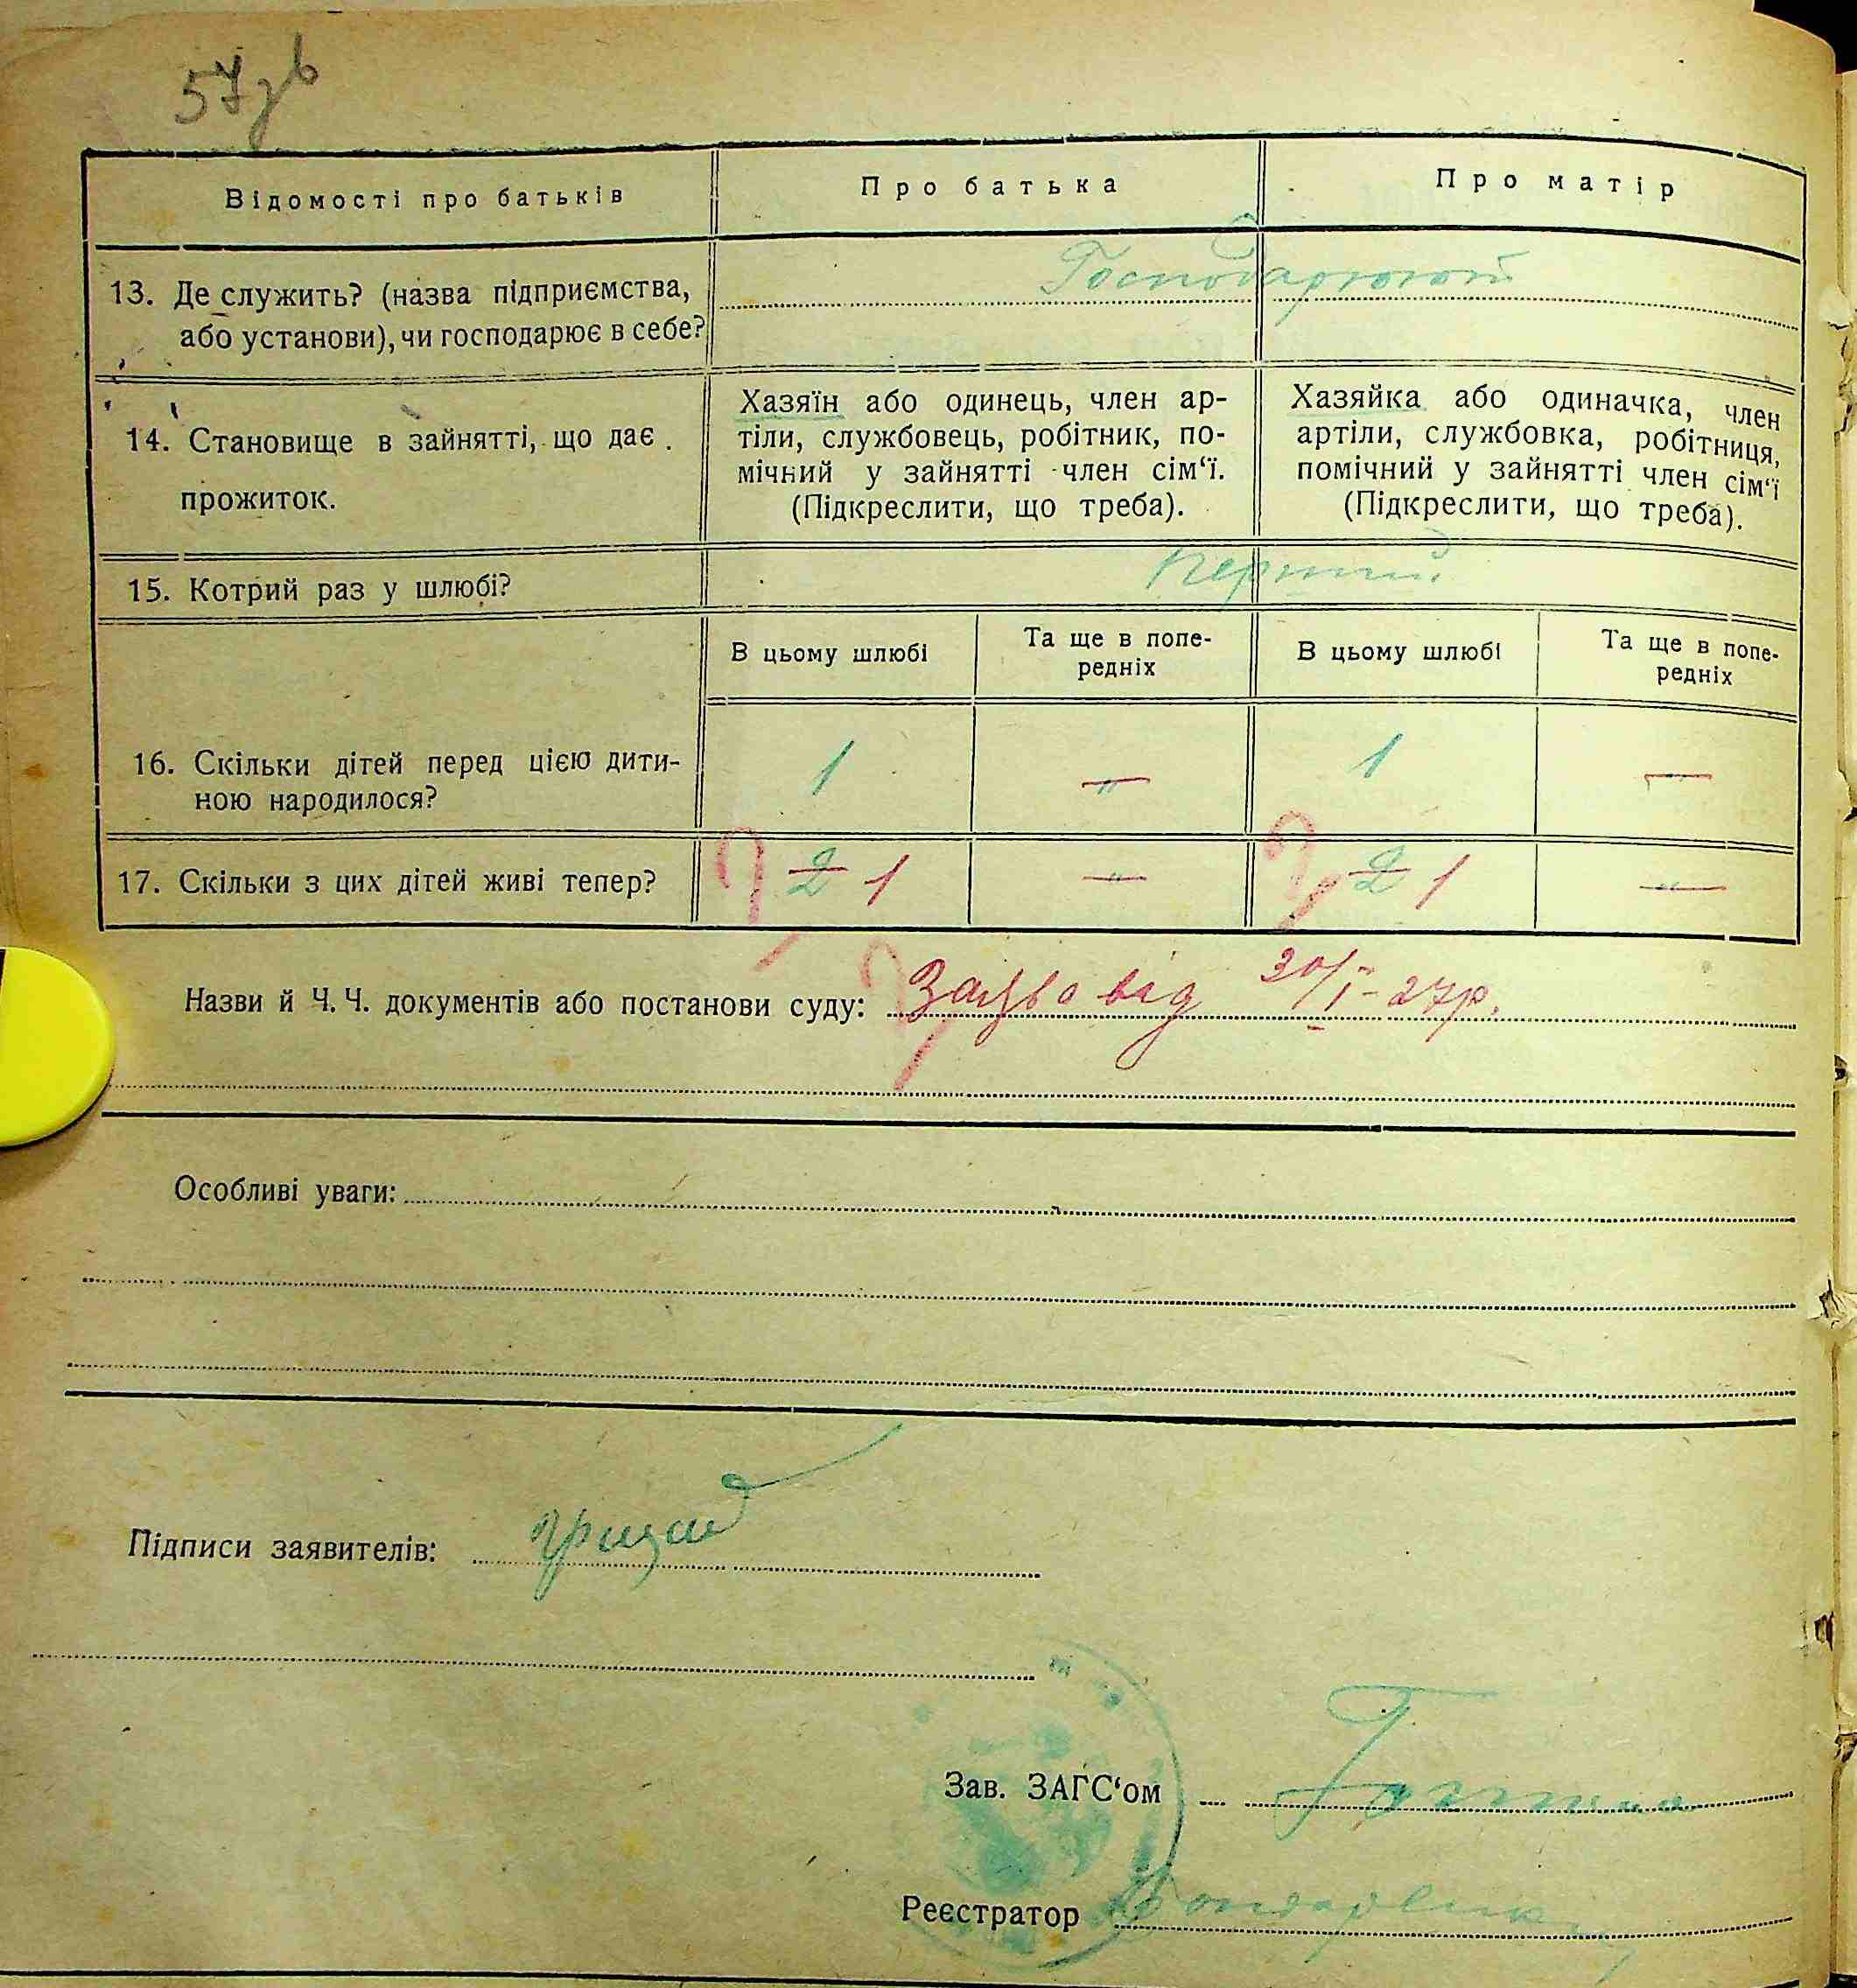 57зв
Відомості про батьків
Про батька
Про матір
13. Де служить? (назва підприємства,
або установи), чи господарює в себе?
Господарюють
14. Становище в зайнятті, що дає
прожиток.
Хазяїн або одинець, член ар-
тіли, службовець, робітник, по-
мічний у зайнятті член сім‘ї.
(Підкреслити, що треба).
Хазяйка або одиначка, член
артіли, службовка, робітниця,
помічний у зайнятті член сім‘ї
(Підкреслити, що треба).
15. Котрий раз у шлюбі?
Перший
В цьому шлюбі
Та ще в попе-
редніх
В цьому шлюбі
Та ще в попе-
редніх
16. Скільки дітей перед цією дити-
ною народилося?
1 — 1 —
17. Скільки з цих дітей живі тепер?
2 1 — 2 1 —
Назви й Ч. Ч. документів або постанови суду: Заява від 30/I-27р.
Особливі уваги:
Підписи заявителів: Грицай
Зав. ЗАГС‘ом
Реєстратор